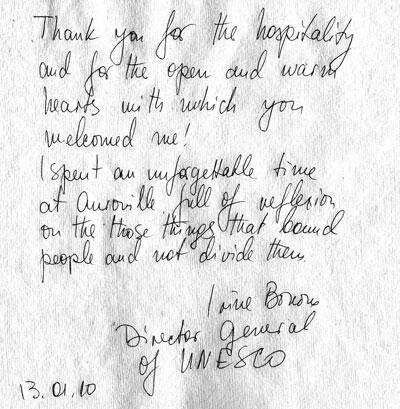 Thank you for the hospitality
and for the open and warm
hearts with which you
welcomed me!
I spent an unforgettable time
at Auroville full of reflexion
on the those things that bound
people and not divide them.
Irina Bokova
Director General
of UNESCO
13.01.10